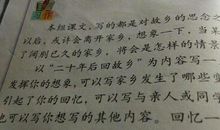 习作
本组课文，写的都是对故乡的思念
以后，或许会离开家乡，想象一下，当某
了阔别已久的家乡，将会是怎样的情景
以“二十年后回故乡”为内容写一
发挥你的想象，可以写家乡发生了哪些变
引起了你的回忆，可以写与亲人或同学
也可以写你想写的其他内容。回忆一